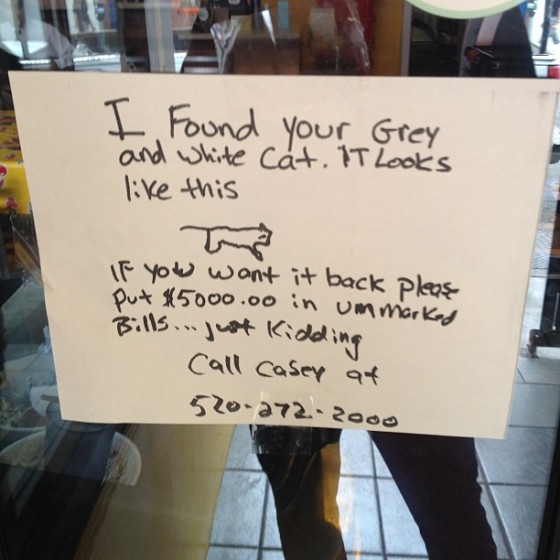 I Found your Grey
and white Cat. IT Looks
like this
IF you want it back please
Put $5000.00 in unmarked
Bills... just kidding
Call Casey at
520-272-2000